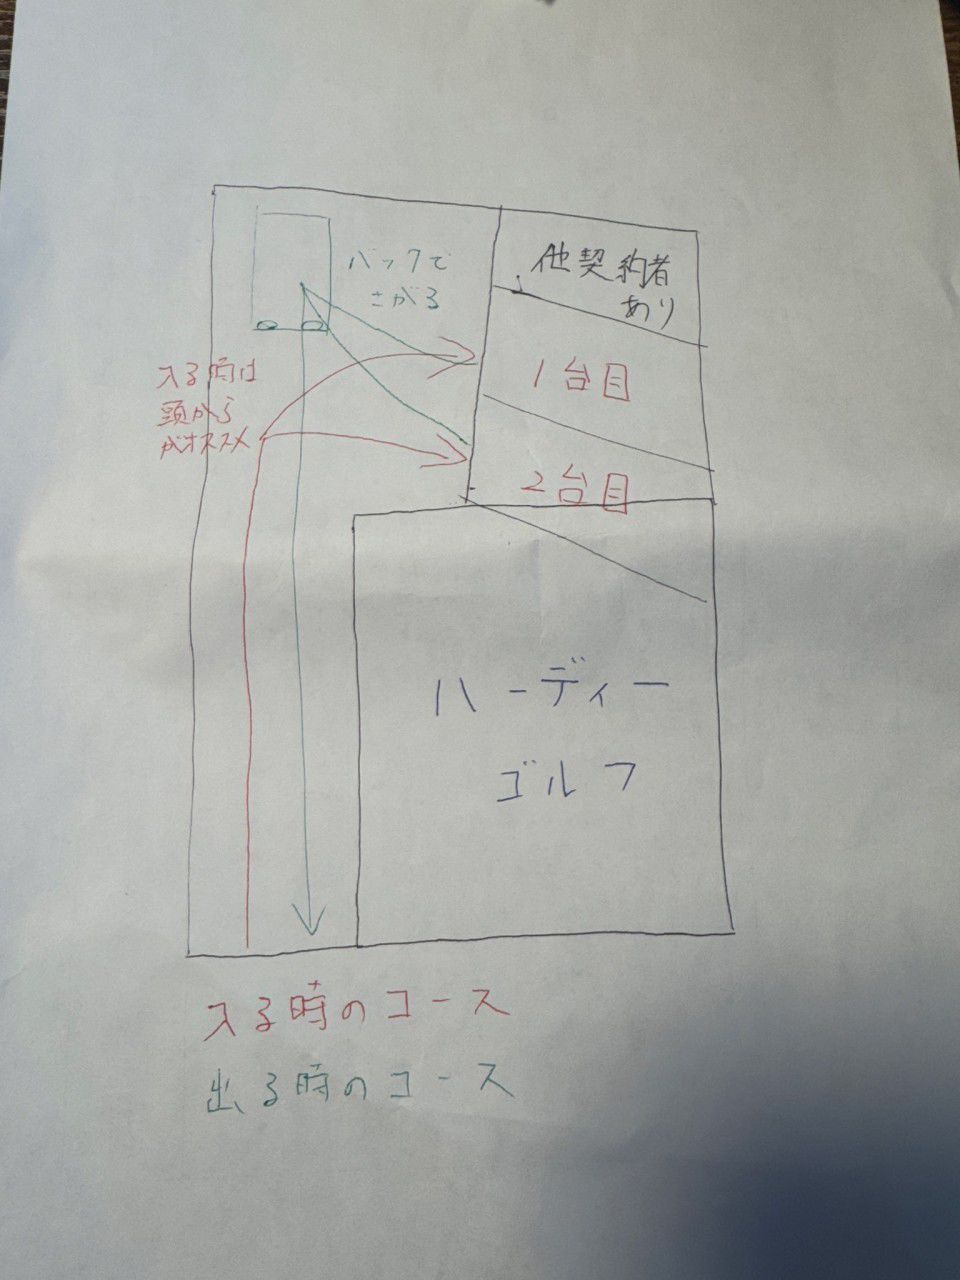 他契約者
あり
バックで
さがる
入る時は
頭から
がオススメ
1台目
2台目
ハーディー
ゴルフ
入る時のコース
出る時のコース